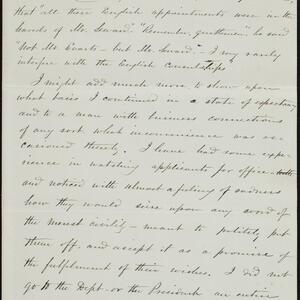 that "all these English appointments were in the
hands of Mr. Seward." "Remember, gentlemen" he said
"Not Mr. Evarts - but Mr. Seward." I very rarely
interfere with the English Consulships"
I might add much more, to show upon
what basis I continued in a state of expectancy
and to a man with business connections
of any sort what inconvenience was oc-
casioned thereby. I have had some expe-
rience in watching applicants for office
and noticed with almost a feeling of sadness
how they would seize upon any word of
the merest civility - meant to politely put
them off, and accept it as a promise of
the fulfilment of their wishes. I did not
go to the Dept - or the President an entire